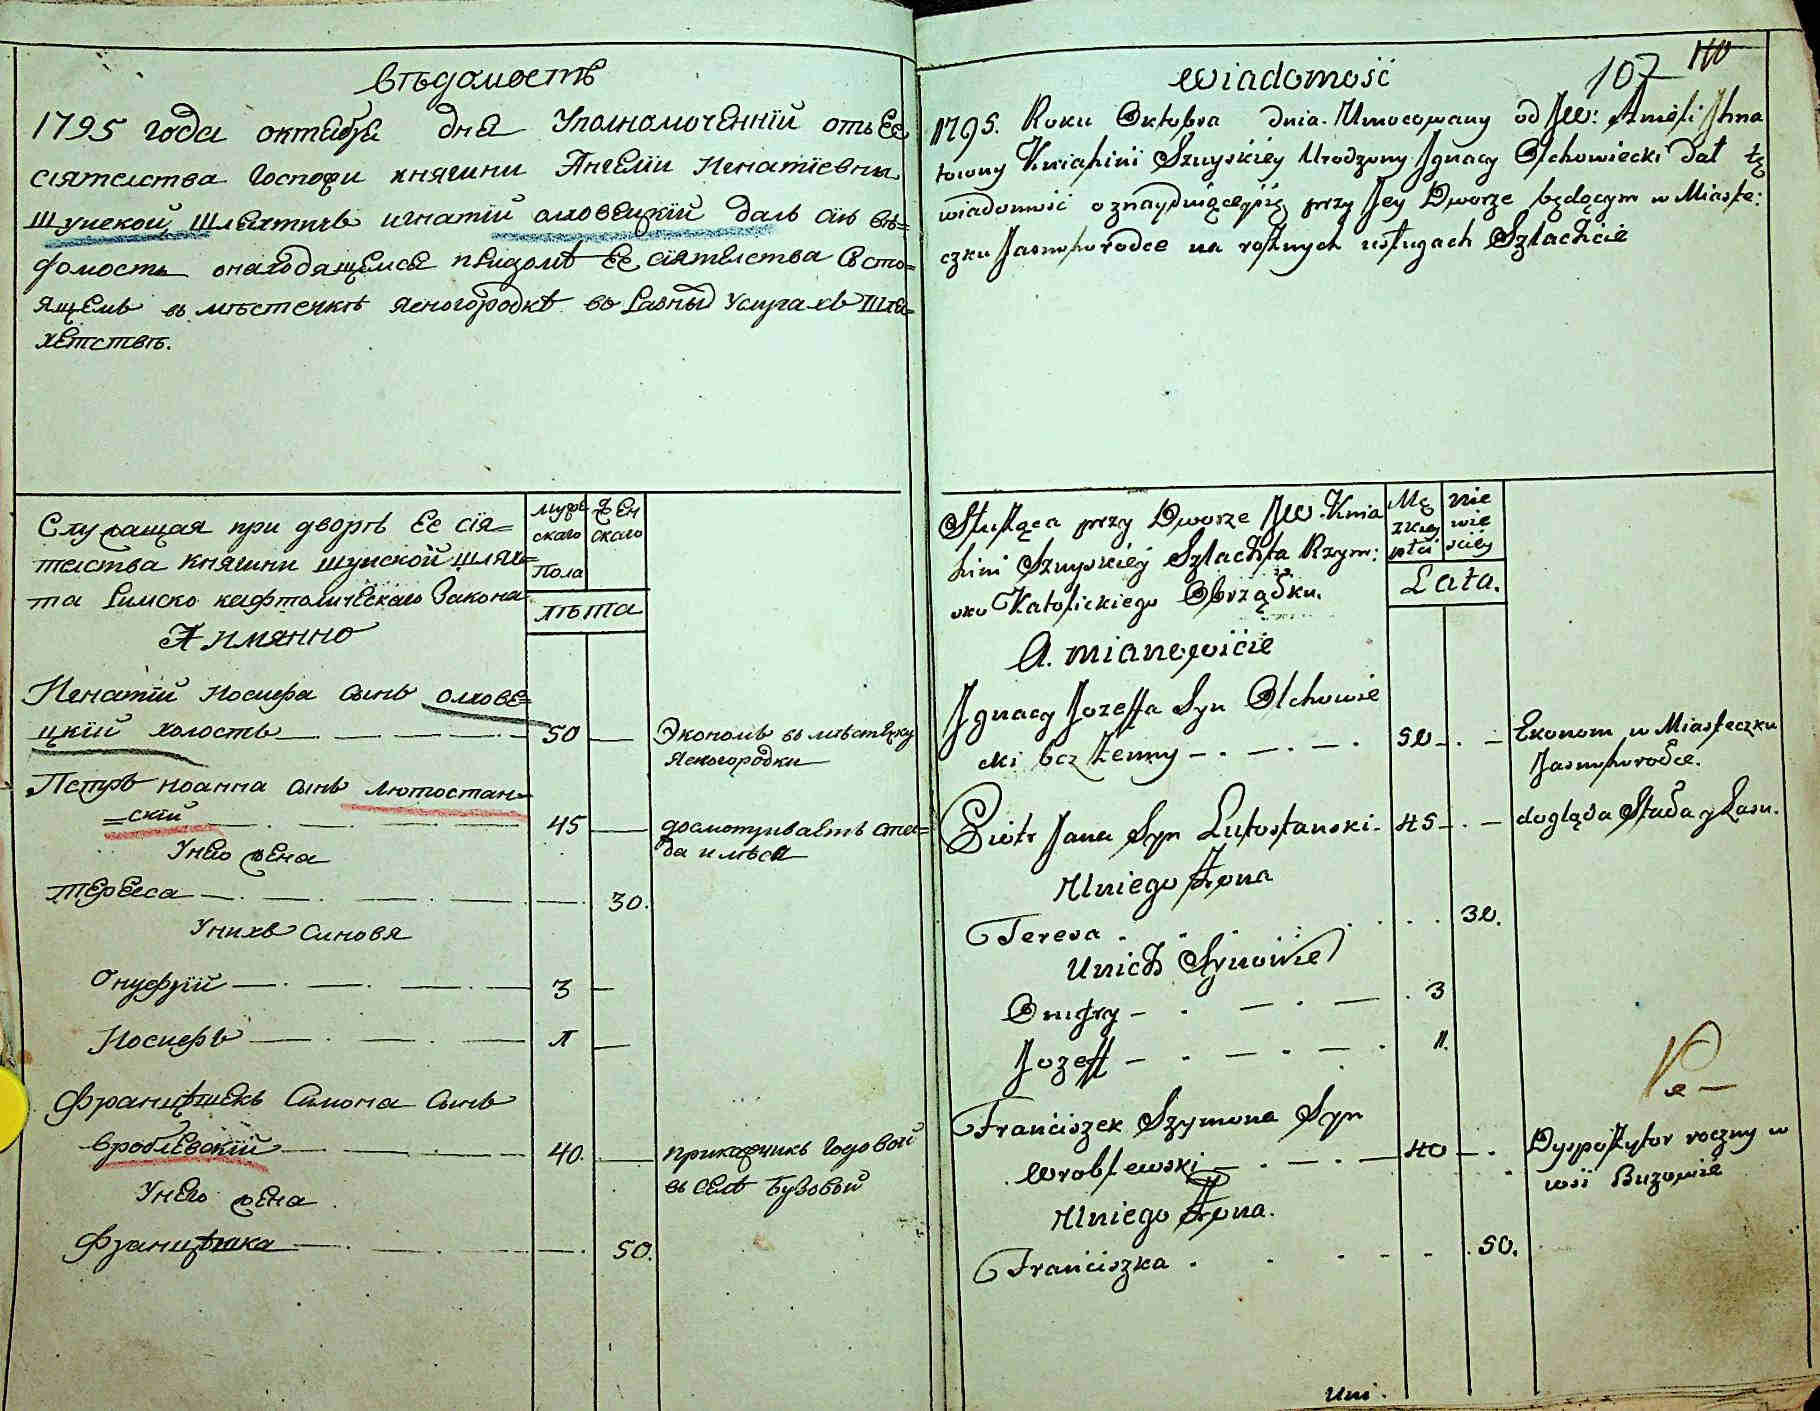 вѣдомость
1795 года октября дня Уполномоченнїй отъ Ее
сіятелства Госпожи княгини Ангелїи Игнатїевны
Шуйской, Шляхтичъ игнатїй олховецкїй далъ сїю вѣ=
домость онаходящемся придомѣ ее сіятелства Состо=
ящемъ въ мѣстечкѣ Ясногородкѣ въ разныхъ Услугахъ шля=
хетствѣ.
Служащая при дворѣ Ее сїя=
телства Княгини шуйской шлях=
та Римско кафтолическаго Закона
А имянно
мужескаго
Пола
жен
скаго
лѣта
Игнатїй Иосифа Сынъ олхове=
цкїй холостъ 50 Экономъ въ мѣстечку
Ясногородки
Петръ Иоанна Сынъ лютостан=
=скїй 45 досмотриваетъ ста=
да и лѣса
Унего жена
Тереса 30.
Унихъ Синовя
Онуфрїй 3
Иосифъ
Францѣшекъ Симона Сынъ
вроблевскїй 40. прикажчикъ Годовой
въ селѣ Бузовой
Унего жена
Францѣшка 50.
107 110
Wiadomość
1795. Roku Oktobra dnia. Umocowany od JW: Anieli Jhna
towny Kniahini Szuyskiey Urodzony Jgnacy Olchowiecki Dał tę
wiadomość o znayduiącey się przy Jey Dworze będącym w Miaste:
czku Jasnohorodce na rożnych usługach Szlachcie
Służąca przy Dworze JW. Knia
hini Szuyskiey Szlachta Rzym:
sko Katolickiego Obrządku.
A. mianowićie
Mę
zkiey
płci
nie
wie
sciey
Lata.
Jgnacy Jozeffa Syn Olchowie
cki bez Żenny 50 Ekonom w Miasteczku
Jasnohorodce.
Piotr Jana Syn Lutostanski 45 dogląda Stada y Lasu.
Uniego Żona
Teresa 30.
Unich Synowie
Onufry 3
Jozeff
Franciszek Szymona Syn
Wroblewski 40 Dyspozytor roczny w
wsi Buzowie
Uniego Żona.
Franciszka 50.
Uni.